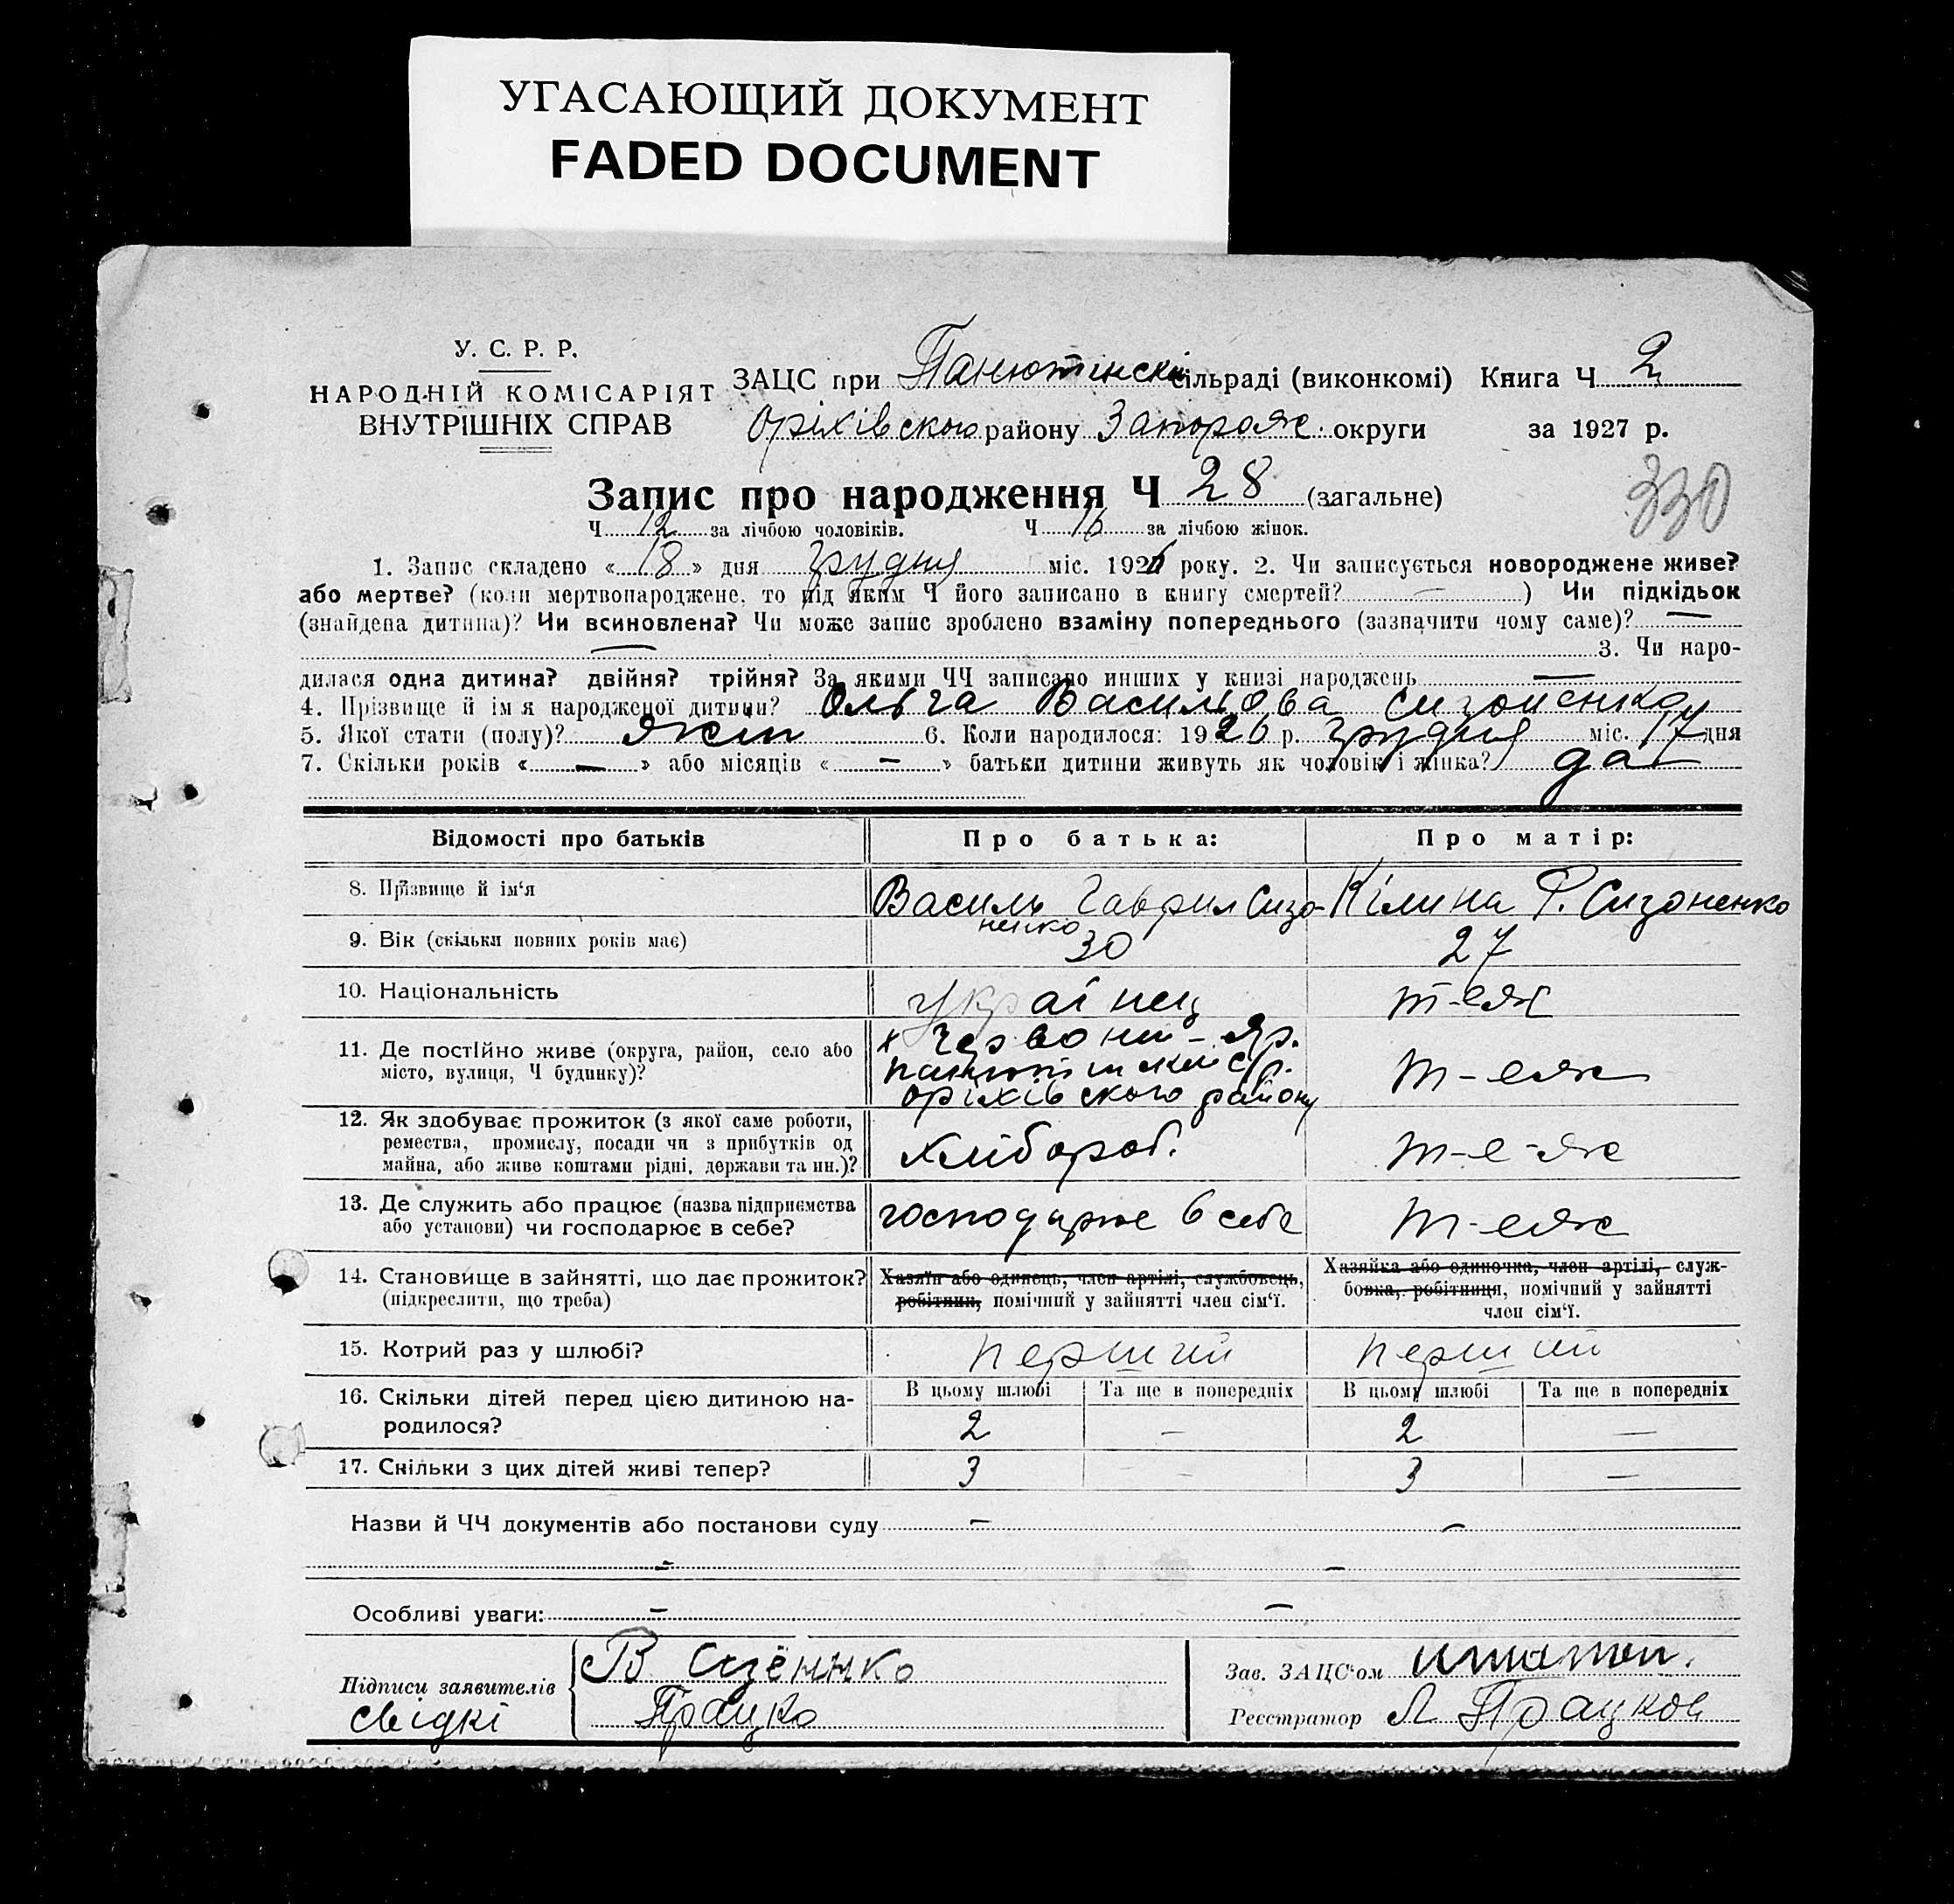 УГАСАЮЩИЙ ДОКУМЕНТ
FADED DOCUMENT
У. С. Р. Р.
НАРОДНІЙ КОМІСАРІЯТ
ВНУТРІШНІХ СПРАВ
ЗАЦС при Панютинскі сільраді (виконкомі) Книга Ч 2
Оріхівського району Запорож. округи за 1927 р.
330
Запис про народження Ч 28 (загальне)
Ч 12 за лічбою чоловіків. Ч 16 за лічбою жінок.
1. Запис складено « 18 » дня грудня міс. 1926 року. 2. Чи записується новороджене живе?
або мертве? (коли мертвонароджене, то під яким Ч його записано в книгу смертей? — ) Чи підкідьок
(знайдена дитина)? Чи всиновлена? Чи може запис зроблено взаміну попереднього (зазначити чому саме)? —
— 3. Чи наро-
дилася одна дитина? двійня? трійня? За якими ЧЧ записано инших у книзі народжень —
4. Прізвище й ім'я народженої дитини? Ольга Васильова Сизоненко
5. Якої стати (полу)? жін 6. Коли народилося: 1926 р. грудня міс. 17 дня
7. Скільки років « — » або місяців « — » батьки дитини живуть як чоловік і жінка? да
Відомості про батьків Про батька: Про матір:
8. Прізвище й ім'я Василь Гаврил Сизо- Кілина Ф. Сизоненко
ненко
9. Вік (скільки повних років має) 30 27
10. Національність Українец т-еж
11. Де постійно живе (округа, район, село або
місто, вулиця, Ч будинку)?
х Червоний-Яр.
с/р.
Оріхівського району
т-еж
12. Як здобуває прожиток (з якої саме роботи,
ремества, промислу, посади чи з прибутків од
майна, або живе коштами рідні, держави та ин.)?
хлібороб. т-е-ж
13. Де служить або працює (назва підприємства
або установи) чи господарює в себе?
господарює в себе т-еж
14. Становище в зайнятті, що дає прожиток?
(підкреслити, що треба)
Хазяїн або одинець, член артілі, службовець,
робітник, помічний у зайнятті член сім'ї.
Хазяйка або одиночка, член артілі, служ-
бовка, робітниця, помічний у зайнятті
член сім'ї.
15. Котрий раз у шлюбі? перший перший
16. Скільки дітей перед цією дитиною на-
родилося?
В цьому шлюбі Та ще в попередніх В цьому шлюбі Та ще в попередніх
2 — 2 —
17. Скільки з цих дітей живі тепер? 3 — 3 —
Назви й ЧЧ документів або постанови суду — —
— —
Особливі уваги: — —
Підписи заявителів
свідкі
В Сизённко
Працко
Зав. ЗАЦС'ом
Реєстратор Л Працков